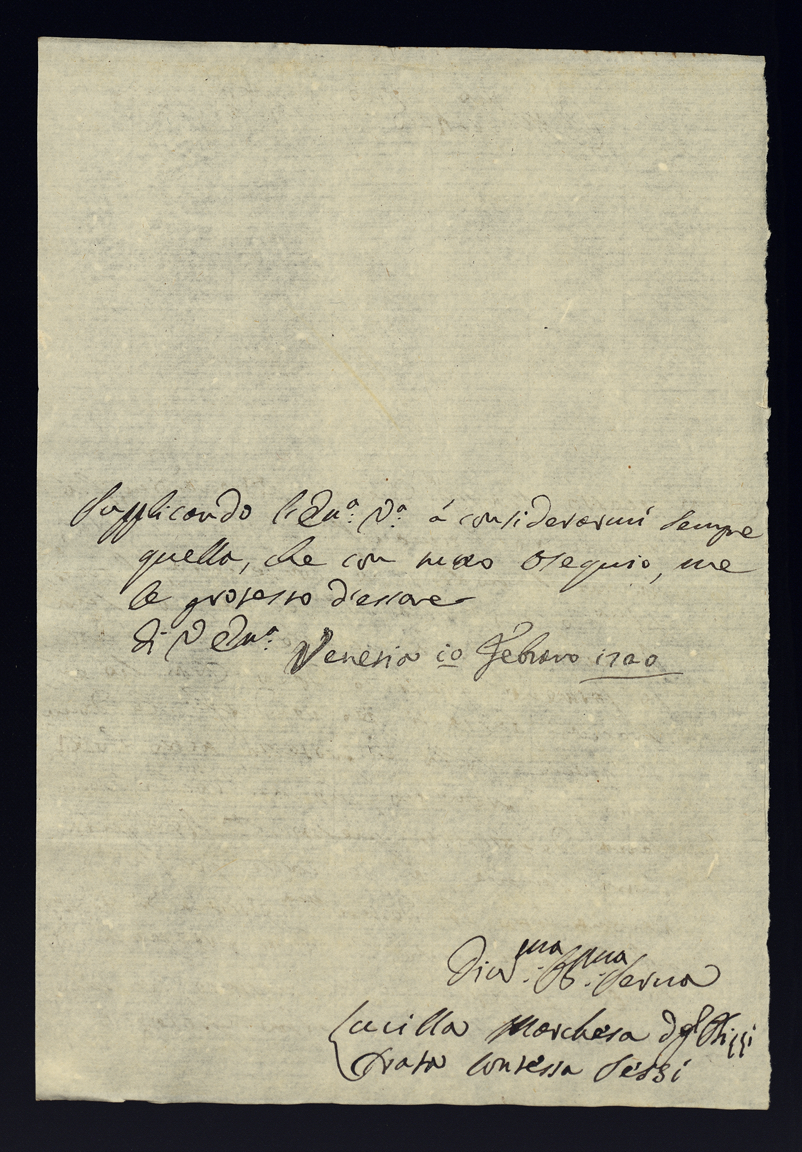 supplicando l'Em.ª V.ª á considerarmi sempre
quella, che con ossequio, me
le protesto d'essere
Di V Em.ª
Venezia 10 Febraro 1720
Divo.ma Obb.ma Serva
Lucilla Marchesa
Prata Contessa Sessi